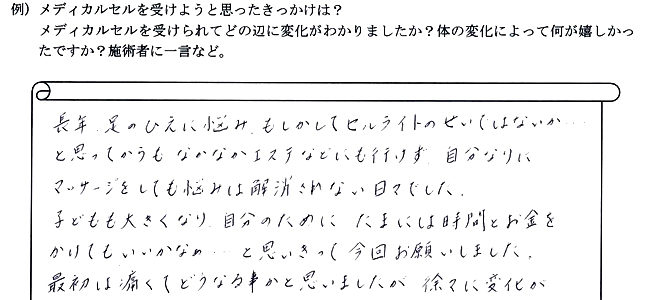 例）メディカルセルを受けようと思ったきっかけは？
メディカルセルを受けられてどの辺に変化がわかりましたか？体の変化によって何が嬉しかっ
たですか？施術者に一言など。
長年、足のひえに悩み、もしかしてセルライトのせいではないか…
と思ってからも なかなかエステなどにも行けず、自分なりに
マッサージをしても悩みは解消されない日々でした。
子どもも大きくなり、自分のために たまには時間とお金を
かけてもいいかなぁ…と思いきって今回お願いしました。
最初は痛くてどうなる事かと思いましたが 徐々に変化が